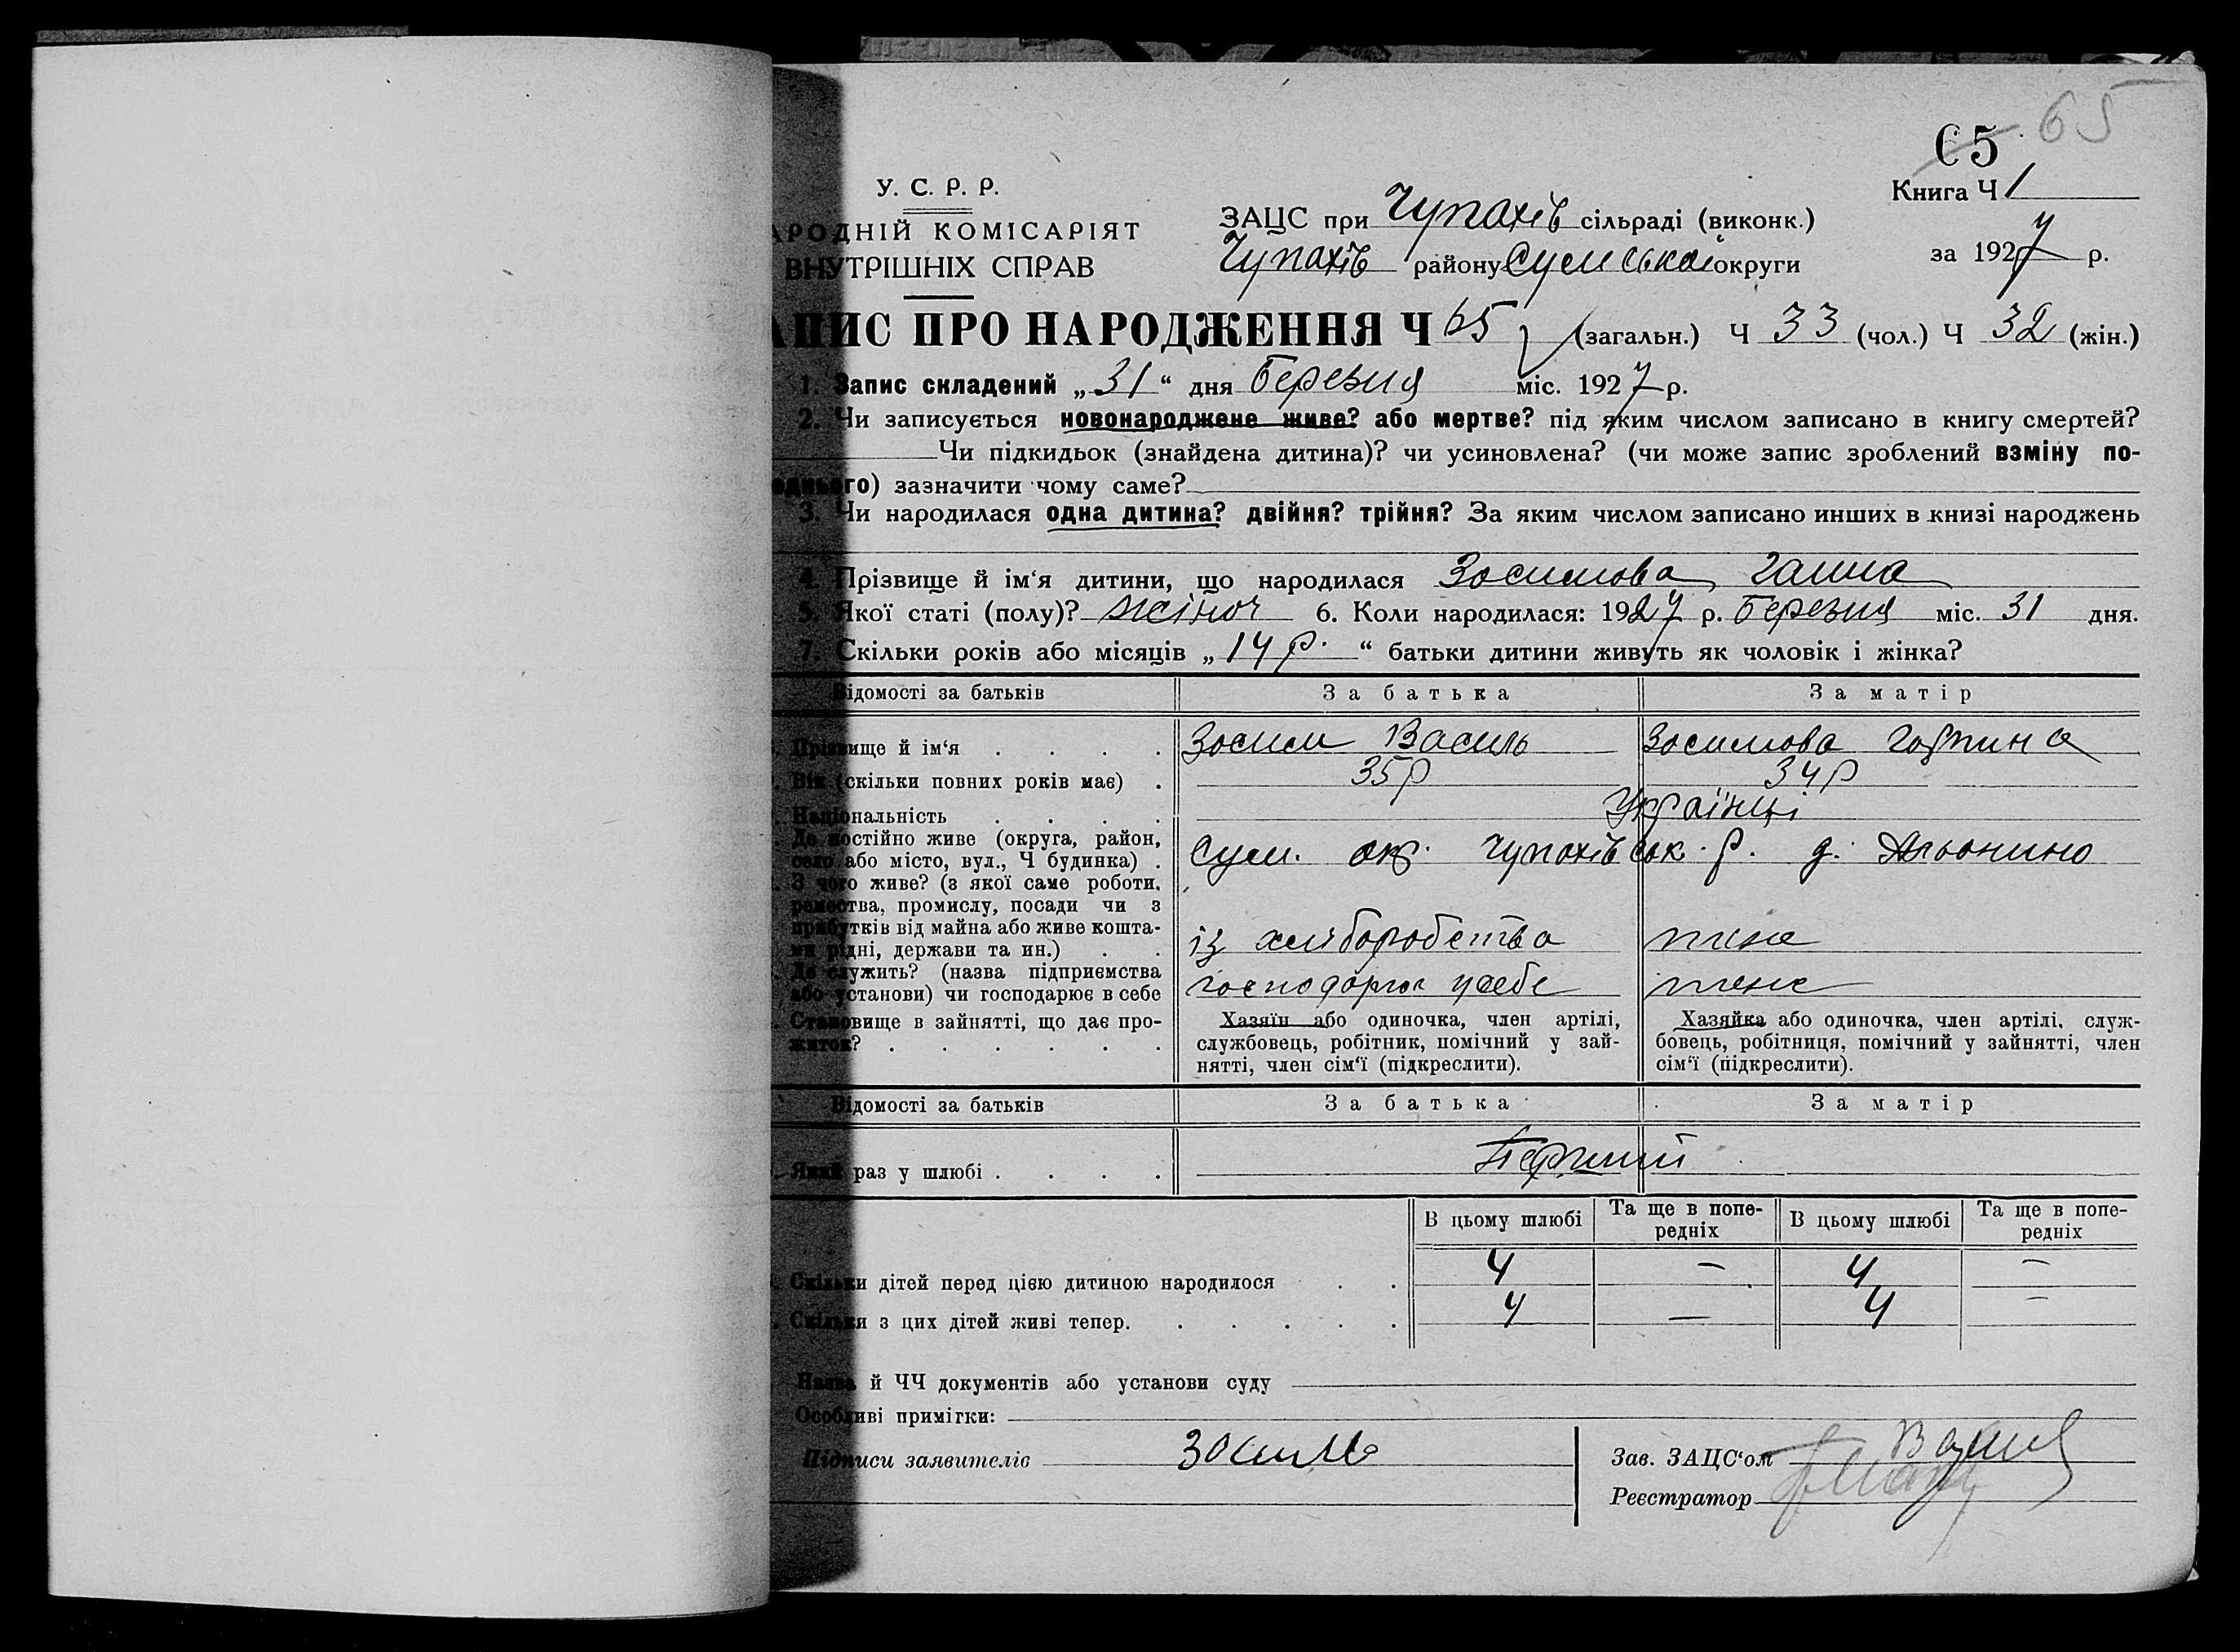 65
65
У. С. Р. Р.
Книга Ч 1
АРОДНІЙ КОМІСАРІЯТ
ЗАЦС при Чупахів сільраді (виконк.)
ВНУТРІШНІХ СПРАВ
Чупахів району Сумської округи
за 1927 р.
АПИС ПРО НАРОДЖЕННЯ Ч 65 (загальн.) Ч 33 (чол.) Ч 32 (жін.)
1. Запис складений „31“ дня Березня міс. 1927 р.
2. Чи записується новонароджене живе? або мертве? під яким числом записано в книгу смертей?
Чи підкидьок (знайдена дитина)? чи усиновлена? (чи може запис зроблений взміну по-
еднього) зазначити чому саме?
3. Чи народилася одна дитина? двійня? трійня? За яким числом записано инших в книзі народжень
4. Прізвище й ім‘я дитини, що народилася Зосимова Ганна
5. Якої статі (полу)? жіноч 6. Коли народилася: 1927 р. Березня міс. 31 дня.
7. Скільки років або місяців „14 р.“ батьки дитини живуть як чоловік і жінка?
Відомості за батьків За батька За матір
Прізвище й ім‘я Зосим Василь Зосимова Горпина
Вік (скільки повних років має) 35 р 34 р
Національність Українці
Де постійно живе (округа, район,
село або місто, вул., Ч будинка) Сум. окр. Чупахівськ. р. д.
З чого живе? (з якої саме роботи,
ремества, промислу, посади чи з
прибутків від майна або живе кошта-
ми рідні, держави та ин.) із хліборобства теж
Де служить? (назва підприємства
або установи) чи господарює в себе господарює у себе теж
Становище в зайнятті, що дає про-
житок?
Хазяїн або одиночка, член артілі,
службовець, робітник, помічний у зай-
нятті, член сім‘ї (підкреслити).
Хазяйка або одиночка, член артілі, служ-
бовець, робітниця, помічний у зайнятті, член
сім‘ї (підкреслити).
Відомості за батьків За батька За матір
Який раз у шлюбі Перший
В цьому шлюбі Та ще в попе-
редніх В цьому шлюбі Та ще в попе-
редніх
Скільки дітей перед цією дитиною народилося 4 – 4 –
Скільки з цих дітей живі тепер. 4 — 4 –
Назва й ЧЧ документів або установи суду
Особливі примітки:
Підписи заявителів Зосима
Зав. ЗАЦС‘ом
Реєстратор